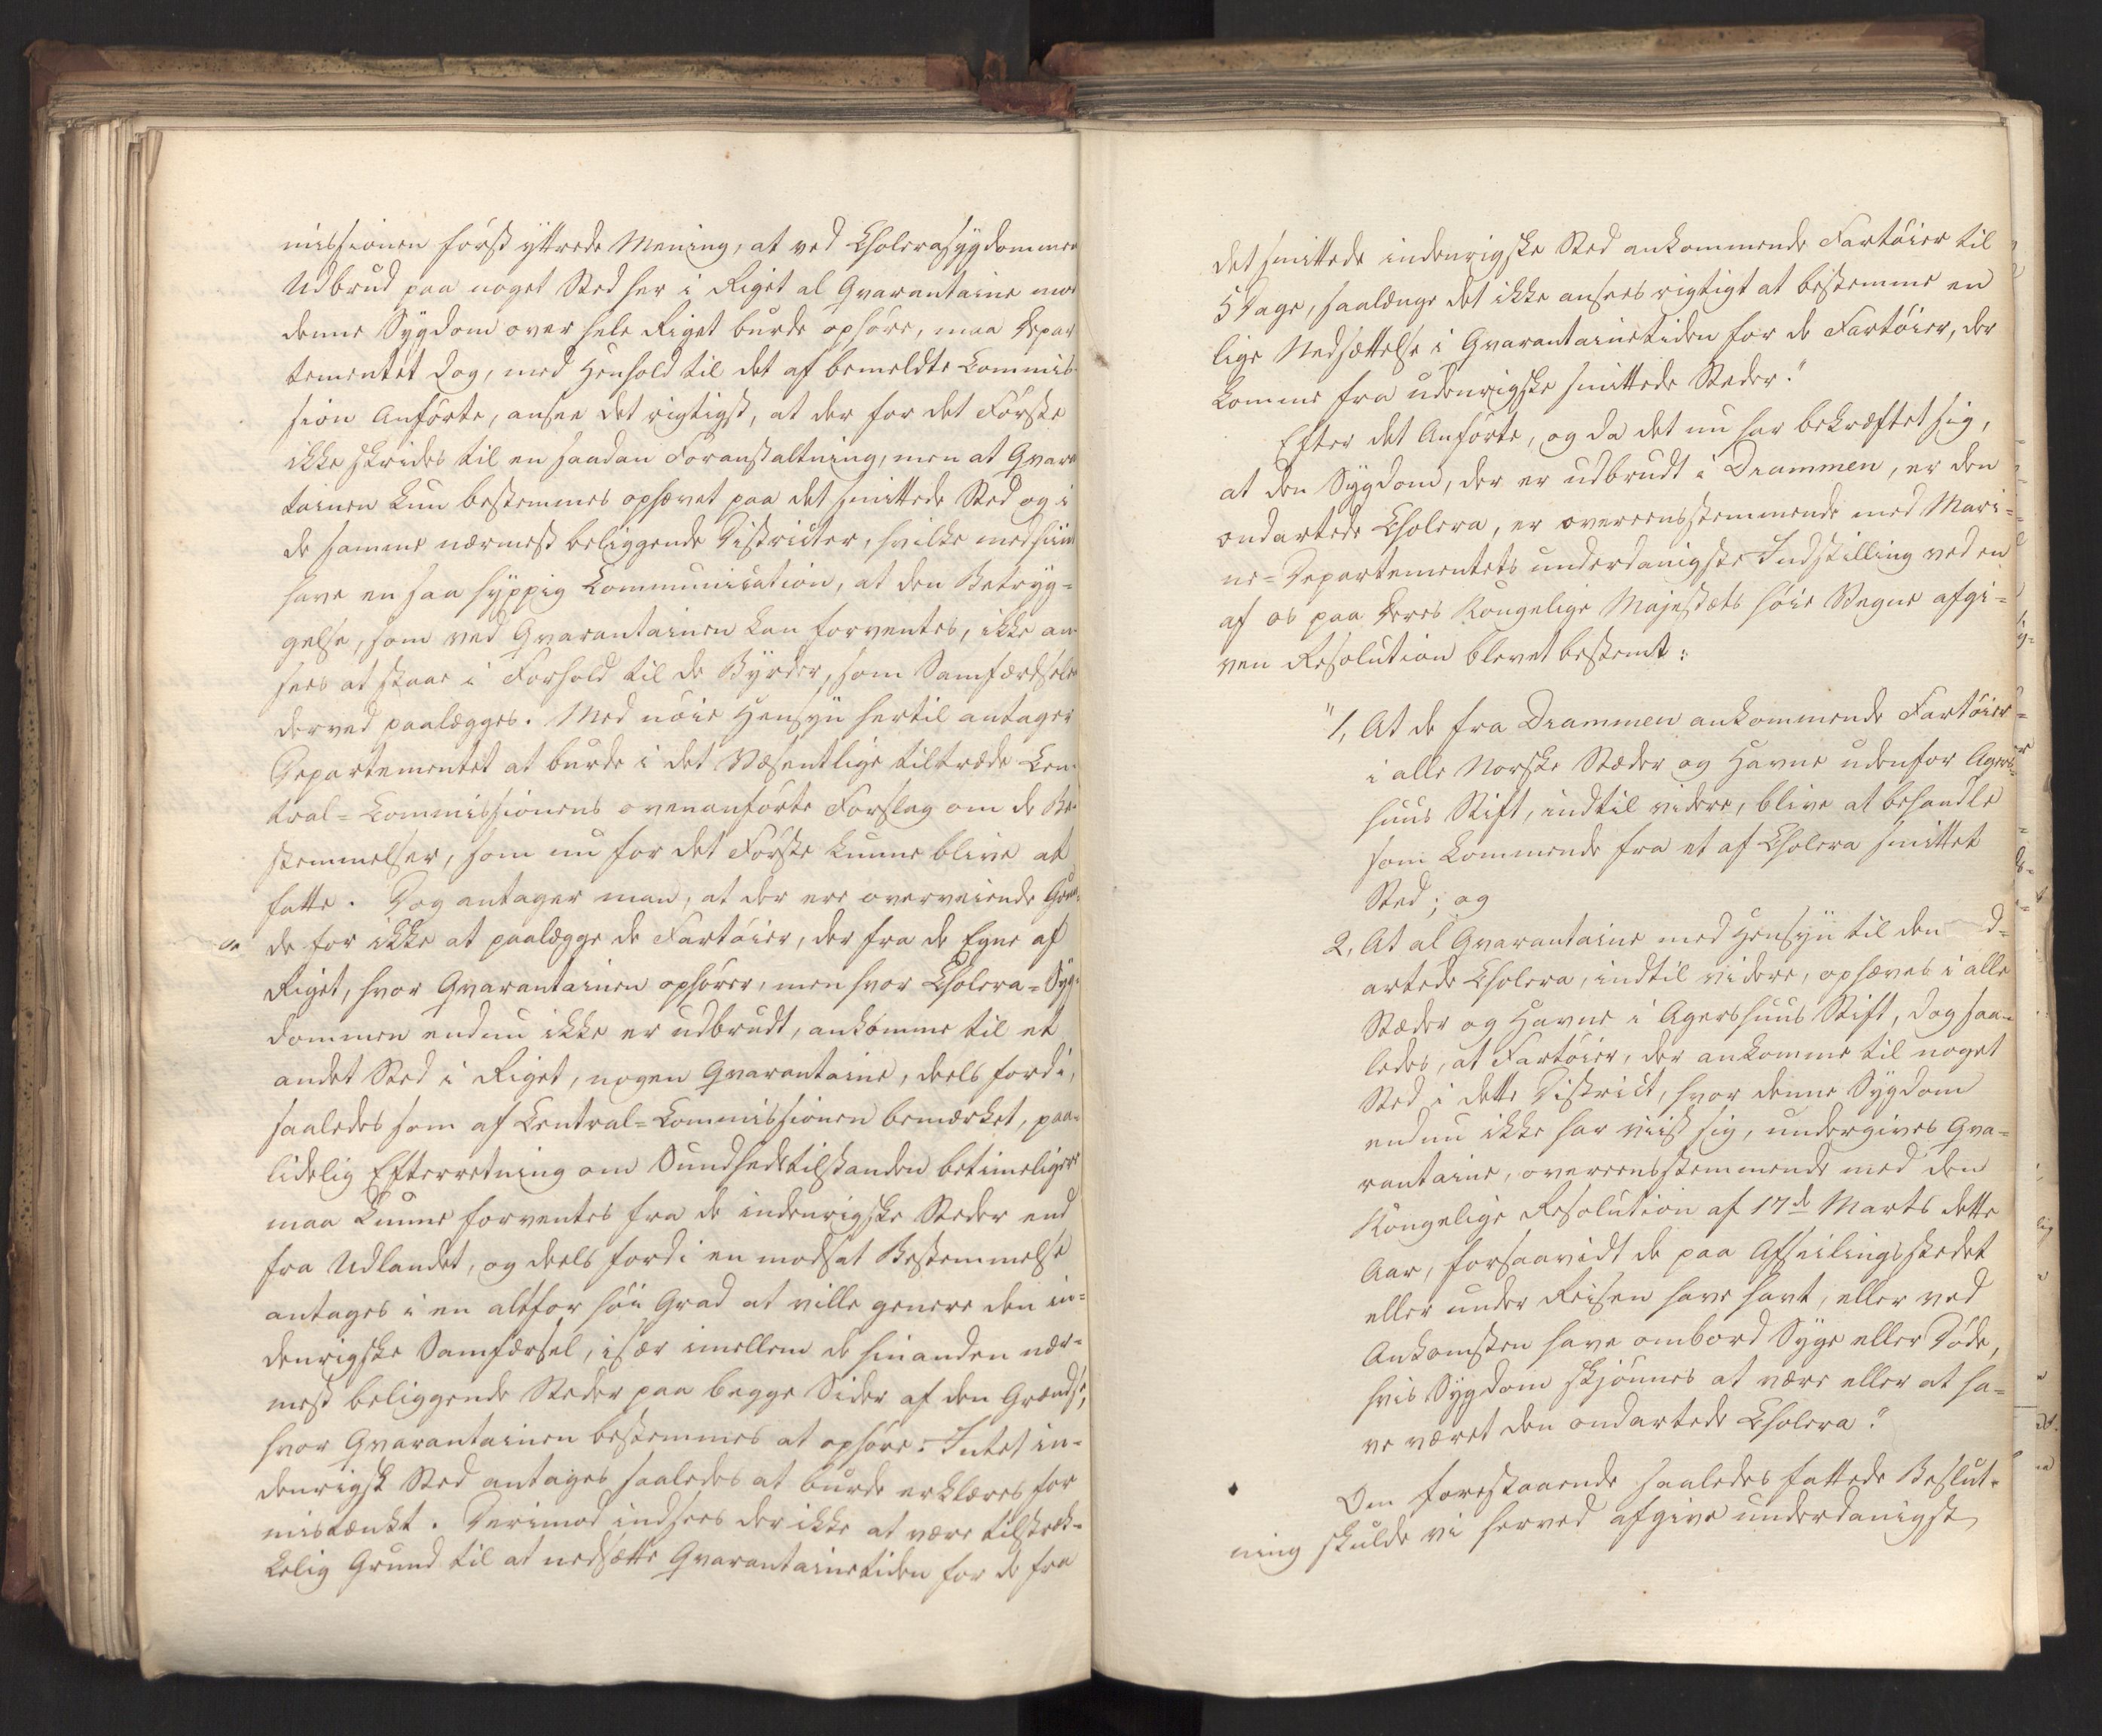 missionen først yttrede Mening, at ved Cholerasygdommen
Udbrud paa noget Sted her i Riget al Qvarantaine mod
denne Sygdom over hele Riget burde ophøre, maa Depar
tementet dog, med Henhold til det af bemeldte Commis-
sion Anførte, ansee det rigtigst, at der for det Første
ikke skrides til en saadan Foranstaltning, men at Qvaran
tainen kun bestemmes ophævet paa det smittede Sted og i
de samme nærmest beliggende Districter, hvilke med hiint
have en saa hyppig Communication, at den Betryg-
gelse, som ved Qvarantainen kan forventes, ikke an-
sees at staae i Forhold til de Byrder, som Samfærdselen
derved paalægges. Med nøie Hensyn hertil antager
Departementet at burde i det Væsentlige tiltræde Cen-
tral-Commissionens ovenanførte Forslag om de Be-
stemmelser, som nu for det Første kunne blive at
fatte. Dog antager man, at der ere overveiende Grun-
de for ikke at paalægge de Fartøier, der fra de Egne af
Riget, hvor Qvarantainen ophører, men hvor Cholera-Syg-
dommen endnu ikke er udbrudt, ankomme til et
andet Sted i Riget, nogen Qvarantaine, deels fordi,
saaledes som af Central-Commissionen bemærket, paa-
lidelig Efterretning om Sundhedstilstanden betimeligere
maa kunne forventes fra de indenrigske Steder end
fra Udlandet, og deels fordi en modsat Bestemmelse
antages i en altfor høi Grad at ville genere den in-
denrigske Samfærsel, især imellem de hinanden nær-
mest beliggende Steder paa begge Sider af den Grændse,
hvor Qvarantainen bestemmes at ophøre. Intet in-
denrigsk Sted antages saaledes at burde erklæres for
mistænkt. Derimod indsees der ikke at være tilstræk-
kelig Grund til at nedsætte Qvarantainetiden for de fra
det smittede indenrigske Sted ankommende Fartøier til
5 Dage, saalænge det ikke ansees rigtigt at bestemme en
lige Nedsættelse i Qvarantainetiden for de Fartøier, der
komme fra udenrigske smittede Steder."
Efter det Anførte, og da det nu har bekræftet sig,
at den Sygdom, der er udbrudt i Drammen, er den
ondartede Cholera, er overeensstemmende med Mari-
ne-Departementets underdanigste Indstilling ved en
af os paa Deres Kongelige Majestæts høie Vegne afgi-
ven Resolution blevet bestemt:
"1, At de fra Drammen ankommende Fartøier
i alle Norske Stæder og Havne udenfor Agers-
huus Stift, indtil videre, blive at behandle
som kommende fra et af Cholera smittet
Sted; og
2, At al Qvarantaine med Hensyn til den d-
artede Cholera, indtil videre, ophæves i alle
Stæder og Havne i Agershuus Stift, dog saa-
ledes, at Fartøier, der ankomme til noget
Sted i dette District, hvor denne Sygdom
endnu ikke har viist sig, undergives Qva-
rantaine, overeensstemmende med den
Kongelige Resolution af 17de Marts dette
Aar, forsaavidt de paa Afseilingsstedet
eller under Reisen have havt, eller ved
Ankomsten have ombord Syge eller Døde,
hvis Sygdom skjønnes at være eller at ha-
ve været den ondartede Cholera."
Om forestaaende saaledes fattede Beslut-
ning skulde vi herved afgive underdanigst